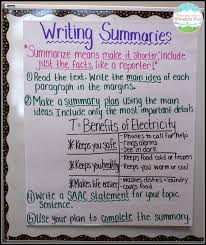 Writing Summaries
*Summarize means make it shorter, include
just the facts, like a reporter!*
① Read the text. Write the main idea of each
paragraph in the margins.
② Make a summary plan using the main
ideas. Include only the most important details
T = Benefits of Electricity
*Keeps you safe
- Phones to call for help
- rings alarms
- see in dark
*Keeps you healthy
- Keeps food cold or frozen
- Keeps you warm or cool
*Make life easier
- washes dishes + clothes
- cooks food
④ Write a SAAC statement for your topic
sentence.
⑤ Use your plan to complete the summary.